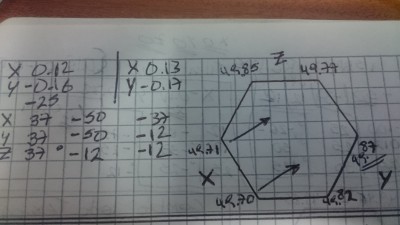 X 0.12 X 0.13
Y -0.16 Y -0.17
-25
X 37 -50 -37
Y 37 -50 -12
Z 37° -12 -12
Z
49,85 49,77
49,71 49,87
X Y
49,70 49,82